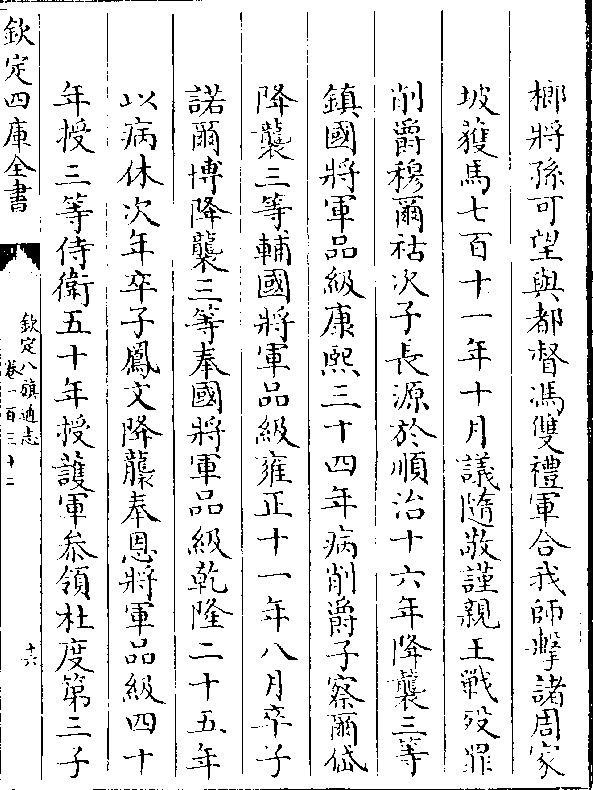 榔將孫可望與都督馮雙禮軍合我師擊諸周家
坡獲馬七百十一年十月議隨敬謹親王戰歿罪
削爵穆爾祜次子長源於順治十六年降襲三等
鎮國將軍品級康熙三十四年病削爵子察爾岱
降襲三等輔國將軍品級雍正十一年八月卒子
諾爾博降襲三等奉國將軍品級乾隆二十五年
以病休次年卒子鳳文降襲奉恩將軍品級四十
年授三等侍衛五十年授護軍叅領杜度第三子
欽定四庫全書
欽定八旗通志
卷一百三十二
十六